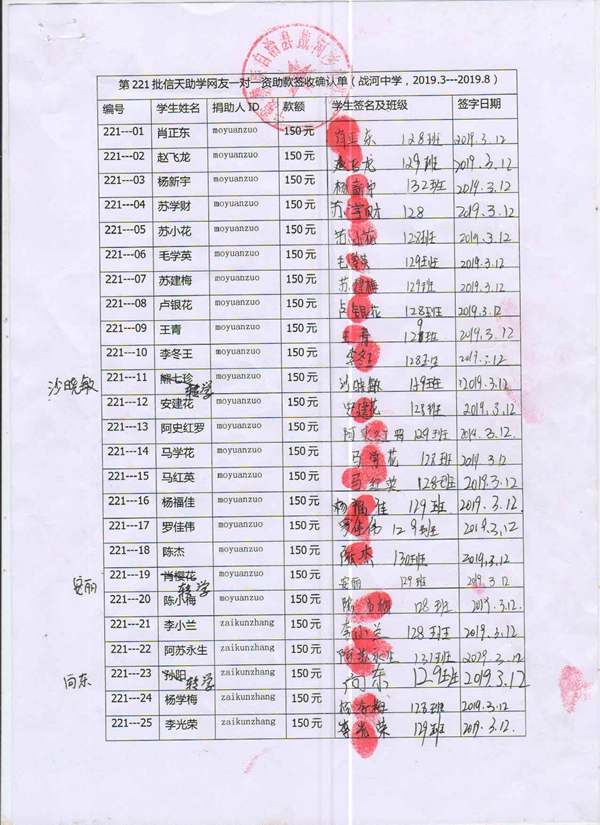 自治县战河
第 221 批信天助学网友一对一资助款签收确认单（战河中学，2019.3---2019.8）
编号 学生姓名 捐助人 ID. 款额 学生签名及班级 签字日期
221---01 肖正东 moyuanzuo 150 元 肖正东 128班 2019.3.12
221---02 赵飞龙 moyuanzuo 150 元 赵飞龙 129班 2019.3.12
221---03 杨新宇 moyuanzuo 150 元 杨新宇 132班 2019.3.12
221---04 苏学财 moyuanzuo 150 元 苏学财 128 2019.3.12
221---05 苏小花 moyuanzuo 150 元 苏小花 128班 2019.3.12
221---06 毛学英 moyuanzuo 150 元 毛学英 129班 2019.3.12
221---07 苏建梅 moyuanzuo 150 元 苏建梅 129班 2019.3.12
221---08 卢银花 moyuanzuo 150 元 卢银花 128班 2019.3.12
221---09 王青 moyuanzuo 150 元 王青 129班 2019.3.12
221---10 李冬王 moyuanzuo 150 元 李冬王 128班 2019.3.12
沙晓敏 221---11 熊七珍 转学 moyuanzuo 150 元 沙晓敏 129班 2019.3.12
221---12 安建花 moyuanzuo 150 元 安建花 128班 2019.3.12.
221---13 阿史红罗 moyuanzuo 150 元 阿史红罗 129班 2019.3.12.
221---14 马学花 moyuanzuo 150 元 马学花 128班 2019.3.12
221---15 马红英 moyuanzuo 150 元 马红英 128班 2019.3.12
221---16 杨福佳 moyuanzuo 150 元 杨福佳 129班 2019.3.12
221---17 罗佳伟 moyuanzuo 150 元 罗佳伟 129班 2019.3.12
221---18 陈杰 moyuanzuo 150 元 陈杰 130班 2019.3.12
安丽 221---19 肖樱花 转学 moyuanzuo 150 元 安丽 129班 2019.3.12
221---20 陈小梅 moyuanzuo 150 元 陈小梅 128班 2019.3.12.
221---21 李小兰 zaikunzhang 150 元 李小兰 128班 2019.3.12
221---22 阿苏永生 zaikunzhang 150 元 阿苏永生 131班 2029.3.12
向东 221---23 孙阳 转学 zaikunzhang 150 元 向东 129班 2019.3.12
221---24 杨学梅 zaikunzhang 150 元 杨学梅 128班 2019.3.12
221---25 李光荣 zaikunzhang 150 元 李光荣 129班 2019.3.12.